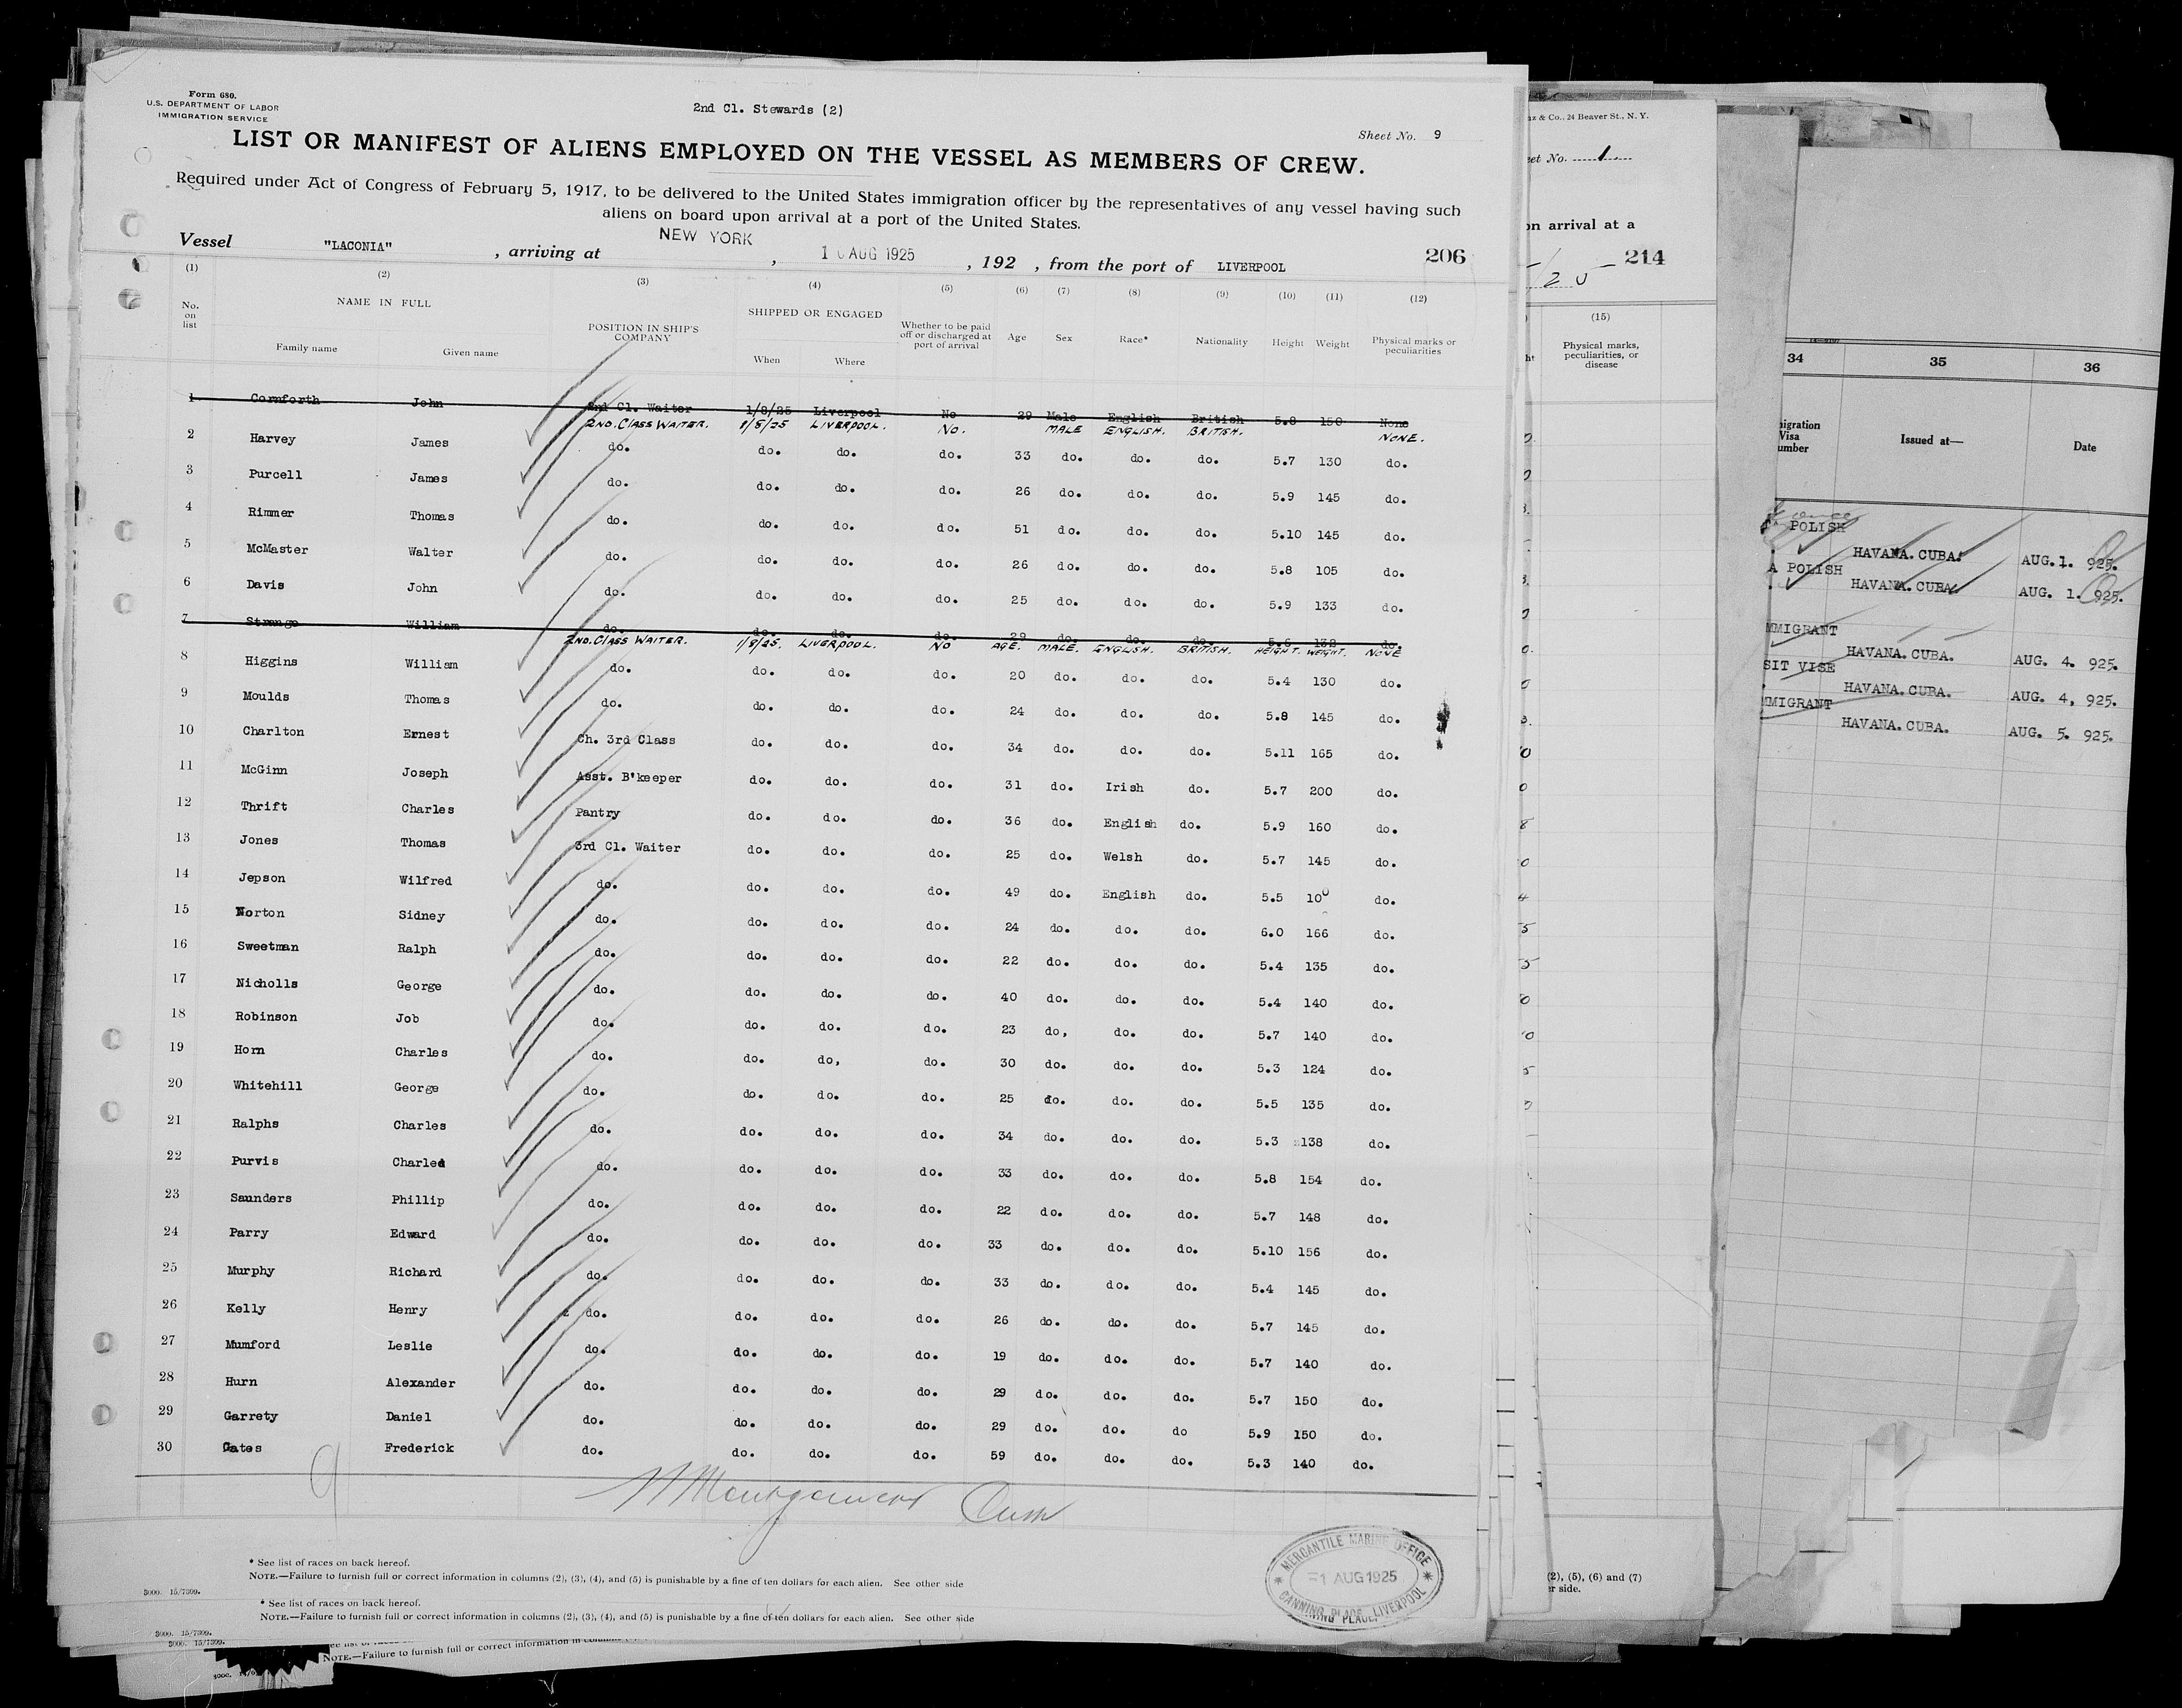 Form 680.
U.S. DEPARTMENT OF LABOR
IMMIGRATION SERVICE
2nd Cl. Stewards (2)
Sheet No. 9
LIST OR MANIFEST OF ALIENS EMPLOYED ON THE VESSEL AS MEMBERS OF CREW.
Required under Act of Congress of February 5, 1917, to be delivered to the United States immigration officer by the representatives of any vessel having such
aliens on board upon arrival at a port of the United States.
Vessel "LACONIA" , arriving at NEW YORK , 1 0 AUG 1925 , 192 , from the port of LIVERPOOL 206
(1) (2) (3) (4) (5) (6) (7) (8) (9) (10) (11) (12)
No. on list NAME IN FULL Family name Given name POSITION IN SHIP'S COMPANY SHIPPED OR ENGAGED When Where Whether to be paid off or discharged at port of arrival Age Sex Race* Nationality Height Weight Physical marks or peculiarities
1 Cornforth John 2nd Cl. Waiter 1/8/25 Liverpool No 29 Male English British 5.8 150 None
2ND. CLASS WAITER. 1/8/25 LIVERPOOL. NO. MALE ENGLISH. BRITISH. NONE.
2 Harvey James do. do. do. do. 33 do. do. do. 5.7 130 do.
3 Purcell James do. do. do. do. 26 do. do. do. 5.9 145 do.
4 Rimmer Thomas do. do. do. do. 51 do. do. do. 5.10 145 do.
5 McMaster Walter do. do. do. do. 26 do. do. do. 5.8 105 do.
6 Davis John do. do. do. do. 25 do. do. do. 5.9 133 do.
7 Strange William do. do. do. do. 29 do. do. do. 5.6 132 do.
2ND. CLASS WAITER. 1/8/25. LIVERPOOL. NO AGE. MALE. ENGLISH. BRITISH. HEIGHT. WEIGHT. NONE
8 Higgins William do. do. do. do. 20 do. do. do. 5.4 130 do.
9 Moulds Thomas do. do. do. do. 24 do. do. do. 5.8 145 do.
10 Charlton Ernest Ch. 3rd Class do. do. do. 34 do. do. do. 5.11 165 do.
11 McGinn Joseph Asst. B'keeper do. do. do. 31 do. Irish do. 5.7 200 do.
12 Thrift Charles Pantry do. do. do. 36 do. English do. 5.9 160 do.
13 Jones Thomas 3rd Cl. Waiter do. do. do. 25 do. Welsh do. 5.7 145 do.
14 Jepson Wilfred do. do. do. do. 49 do. English do. 5.5 100 do.
15 Norton Sidney do. do. do. do. 24 do. do. do. 6.0 166 do.
16 Sweetman Ralph do. do. do. do. 22 do. do. do. 5.4 135 do.
17 Nicholls George do. do. do. do. 40 do. do. do. 5.4 140 do.
18 Robinson Job do. do. do. do. 23 do, do. do. 5.7 140 do.
19 Horn Charles do. do. do, do. 30 do. do. do. 5.3 124 do.
20 Whitehill George do. do. do. do. 25 do. do. do. 5.5 135 do.
21 Ralphs Charles do. do. do. do. 34 do. do. do. 5.3 138 do.
22 Purvis Charles do. do. do. do. 33 do. do. do. 5.8 154 do.
23 Saunders Phillip do. do. do. do. 22 do. do. do. 5.7 148 do.
24 Parry Edward do. do. do. do. 33 do. do. do. 5.10 156 do.
25 Murphy Richard do. do. do. do. 33 do. do. do. 5.4 145 do.
26 Kelly Henry do. do. do. do. 26 do. do. do. 5.7 145 do.
27 Mumford Leslie do. do. do. do. 19 do. do. do. 5.7 140 do.
28 Hurn Alexander do. do. do. do. 29 do. do. do. 5.7 150 do.
29 Garrety Daniel do. do. do. do. 29 do. do. do 5.9 150 do.
30 Gates Frederick do. do. do. do. 59 do. do. do. 5.3 140 do.
9
MERCANTILE MARINE OFFICE
1 AUG 1925
CANNING PLACE, LIVERPOOL
* See list of races on back hereof.
NOTE.—Failure to furnish full or correct information in columns (2), (3), (4), and (5) is punishable by a fine of ten dollars for each alien. See other side
3000. 15/7309.
* See list of races on back hereof.
NOTE.—Failure to furnish full or correct information in columns (2), (3), (4), and (5) is punishable by a fine of ten dollars for each alien. See other side
3000. 15/7309.
3000. 15/7309.
NOTE.—Failure to furnish full or correct information in
& Co., 24 Beaver St., N. Y.
No. 1
on arrival at a
214
(15)
Physical marks,
peculiarities, or
disease
(2), (5), (6) and (7)
side.
34 35 36
Visa Issued at— Date
POLISH
HAVANA. CUBA. AUG. 1. 925.
A POLISH
HAVANA. CUBA. AUG. 1. 925.
MMIGRANT
HAVANA. CUBA. AUG. 4. 925.
SIT VISE
HAVANA. CUBA. AUG. 4, 925.
MMIGRANT
HAVANA. CUBA. AUG. 5. 925.